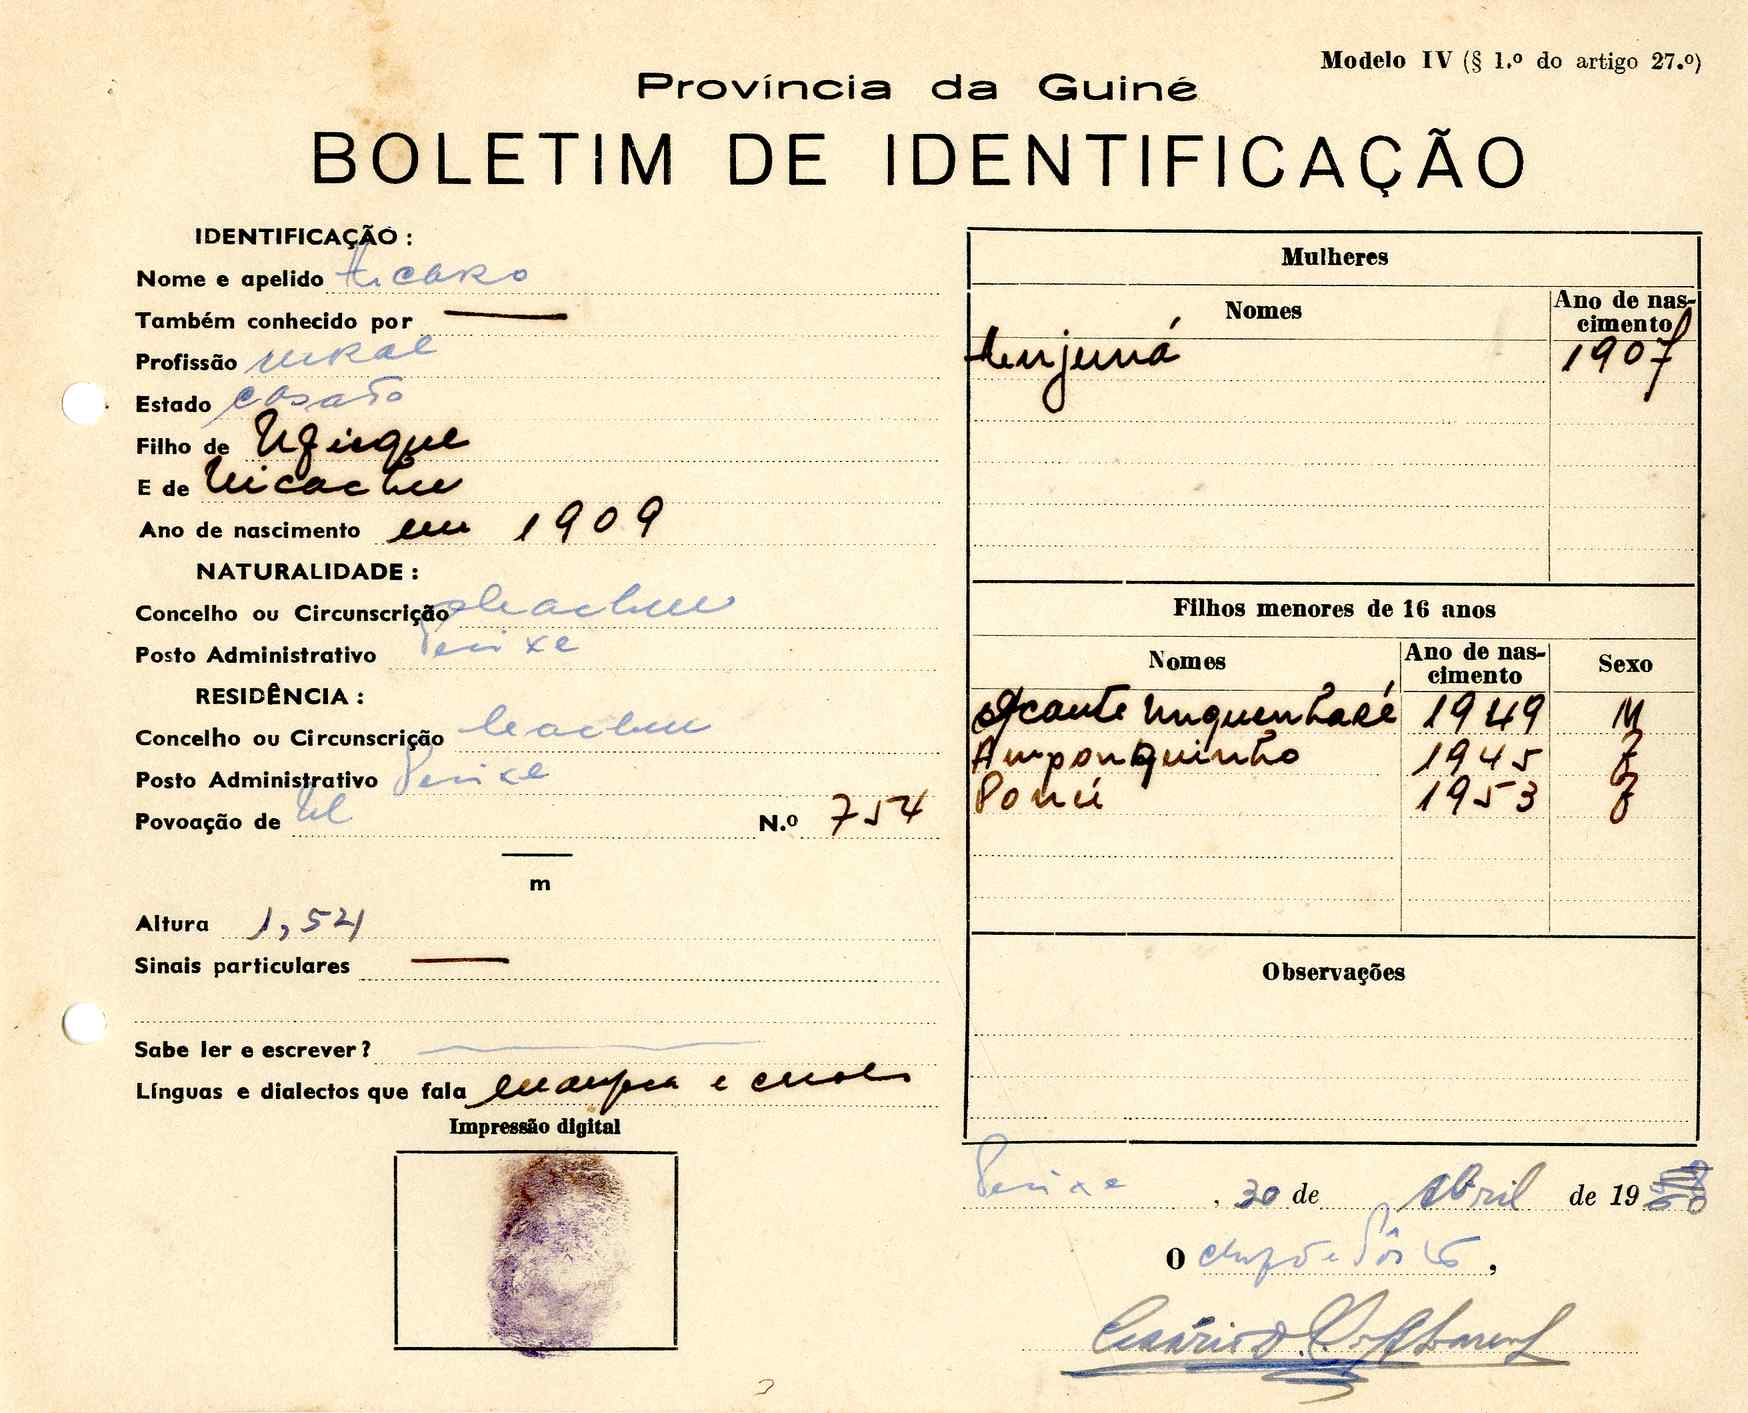 Modelo IV (§ 1.º do artigo 27.º)
Província da Guiné
BOLETIM DE IDENTIFICAÇÃO
IDENTIFICAÇÃO :
Nome e apelido
Também conhecido por
Profissão rural
Estado casado
Filho de
E de
Ano de nascimento em 1909
NATURALIDADE :
Concelho ou Circunscrição Cacheu
Posto Administrativo Pecixe
RESIDÊNCIA :
Concelho ou Circunscrição Cacheu
Posto Administrativo Pecixe
Povoação de N.º 754
m
Altura 1,54
Sinais particulares
Sabe ler e escrever ?
Línguas e dialectos que fala e
Impressão digital
Mulheres
Nomes
Ano de nas-
cimento
1907
Filhos menores de 16 anos
Nomes
Ano de nas-
cimento
Sexo
1949 M
Amponquinho 1945 F
1953 F
Observações
Pecixe , 30 de Abril de 19
O Chefe de Pôsto,